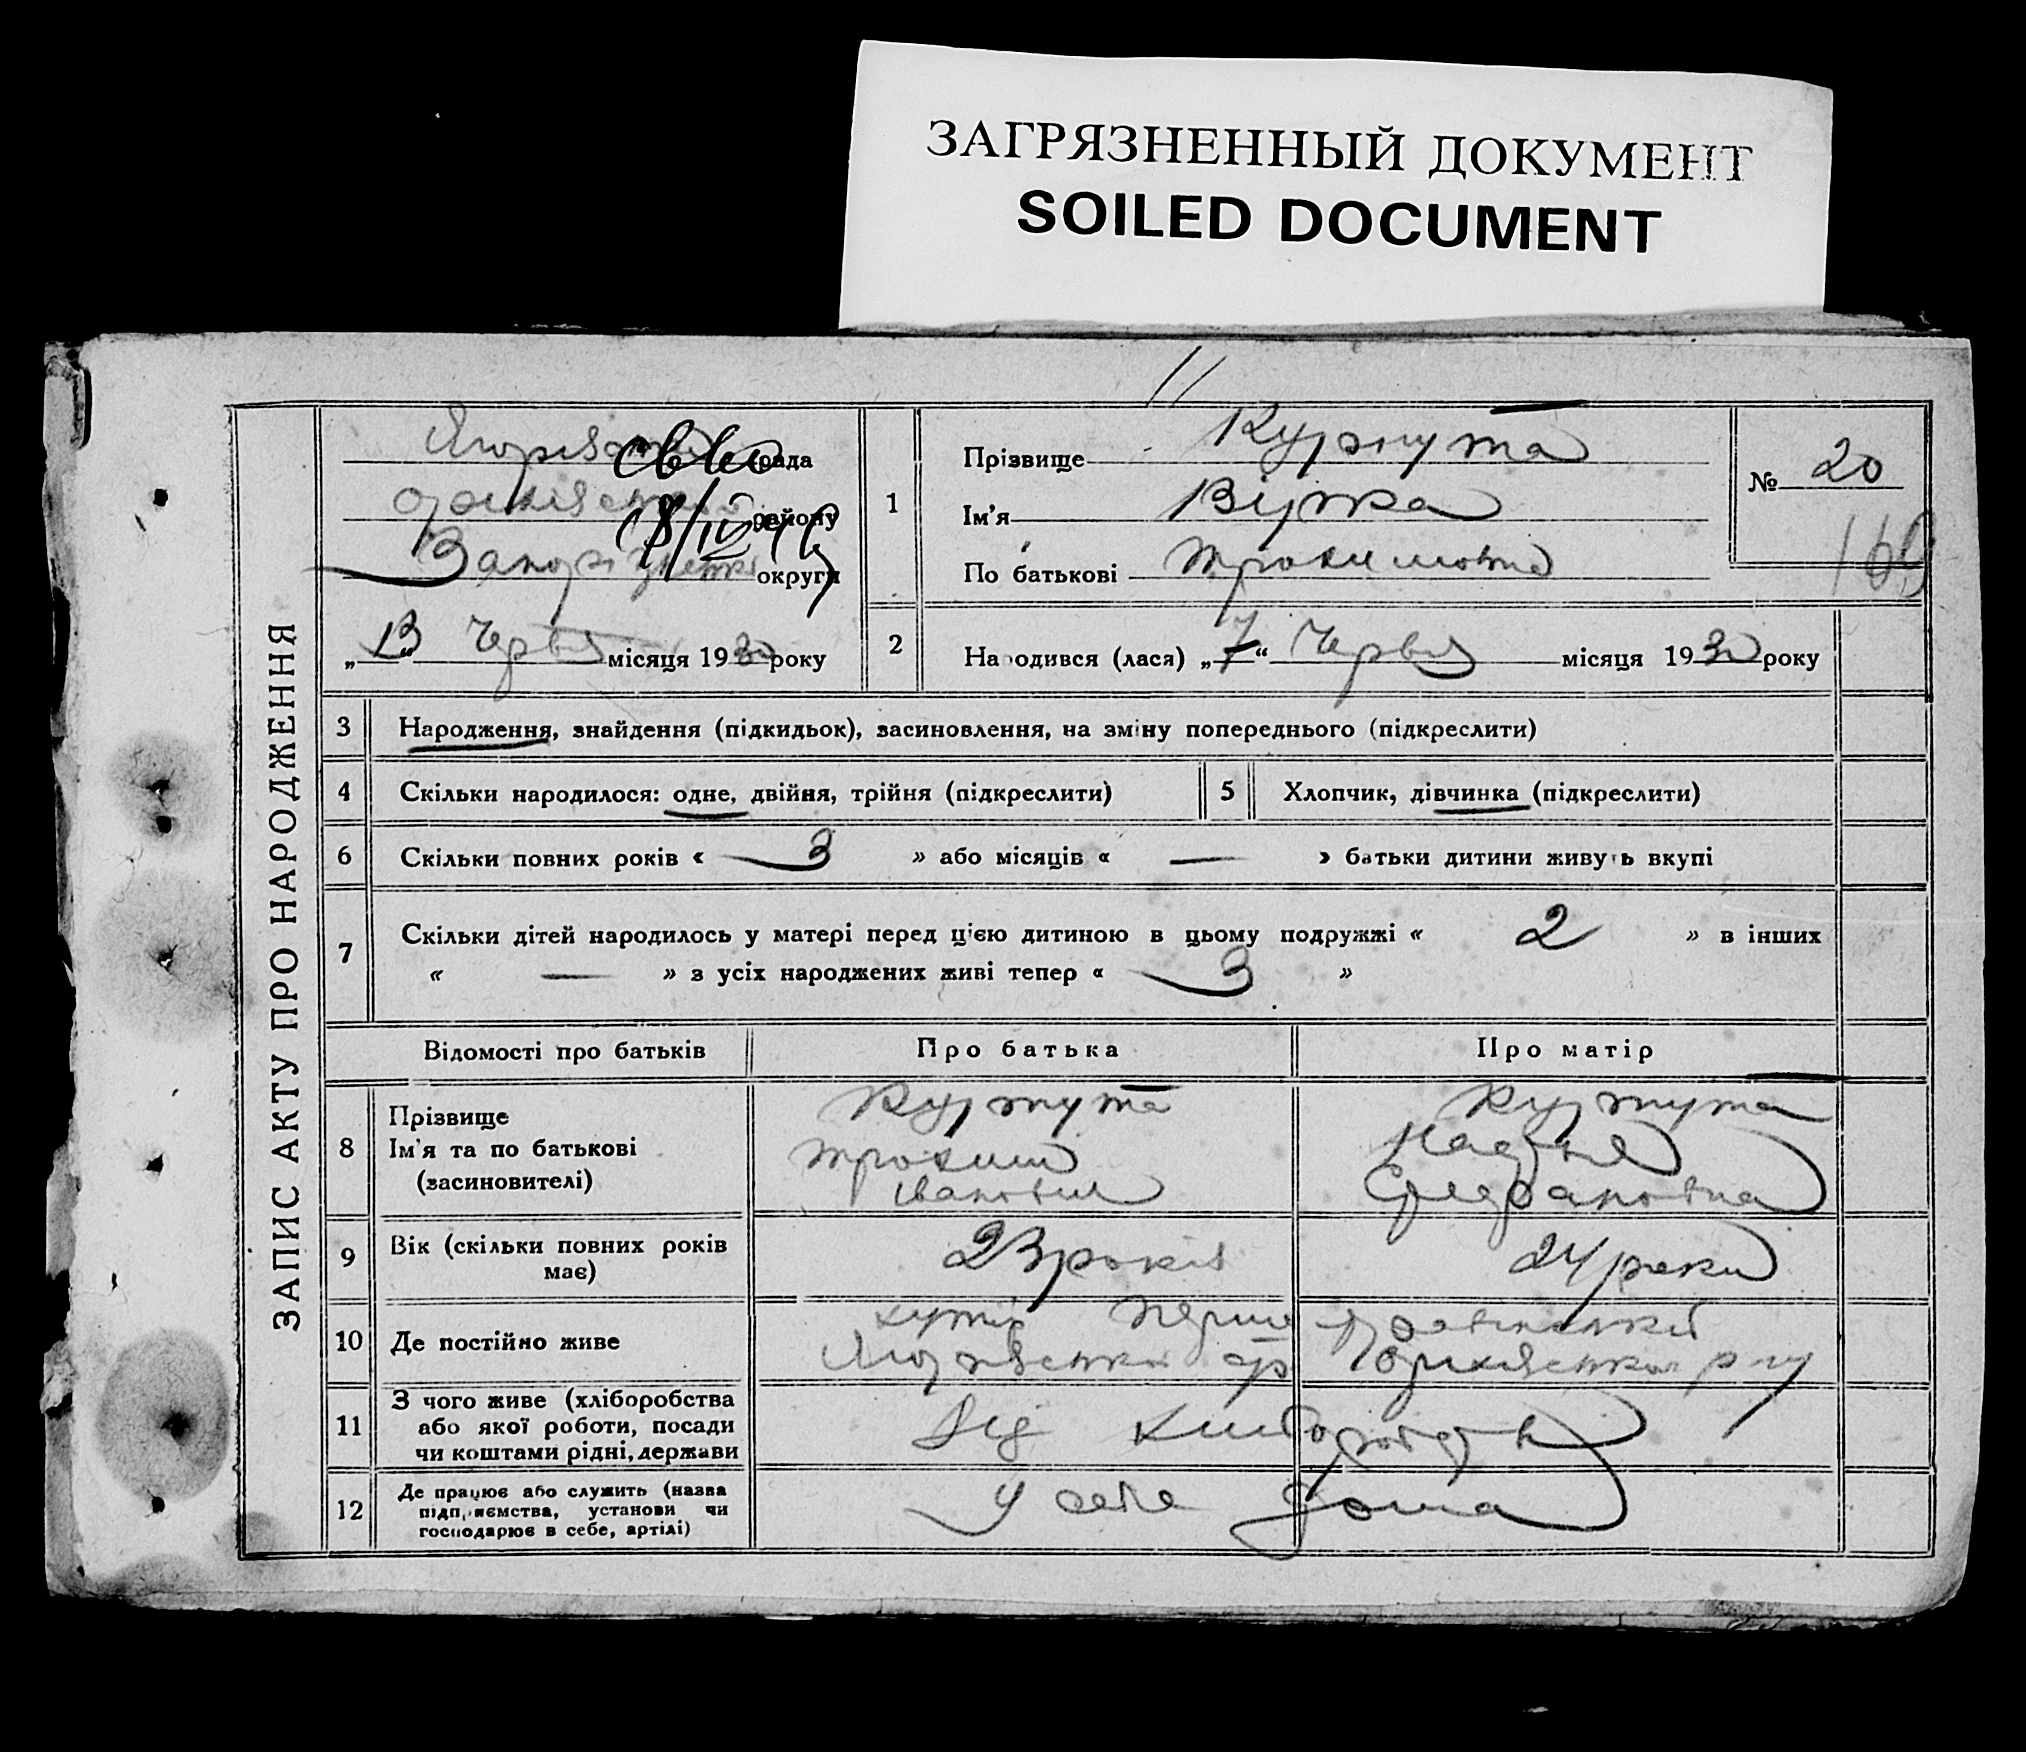 ЗАГРЯЗНЕННЫЙ ДОКУМЕНТ
SOILED DOCUMENT
ЗАПИС АКТУ ПРО НАРОДЖЕННЯ
рада
району
Запорізької округи
„13“ Червня місяця 1930 року
1
Прізвище Курпута
Ім'я Вірка
По батькові Трохимовна
№ 20
169
2
Народився (лася) „7“ Червня місяця 1930 року
3 Народження, знайдення (підкидьок), засиновлення, на зміну попереднього (підкреслити)
4 Скільки народилося: одне, двійня, трійня (підкреслити) 5 Хлопчик, дівчинка (підкреслити)
6 Скільки повних років « 3 » або місяців « — » батьки дитини живуть вкупі
7 Скільки дітей народилось у матері перед цією дитиною в цьому подружжі « 2 » в інших
« — » з усіх народжених живі тепер « 3 »
Відомості про батьків Про батька Про матір
8 Прізвище
Ім'я та по батькові
(засиновителі)
Курпута
Трохим
Іванович
Курпута
Надія
9 Вік (скільки повних років
має)
23 років
24 роки
10 Де постійно живе
хутір Перше
Оріхівського р-ну
11 З чого живе (хліборобства
або якої роботи, посади
чи коштами рідні, держави
Від хліборобства
12 Де працює або служить (назва
підприємства, установи чи
господарює в себе, артілі)
У себе дома